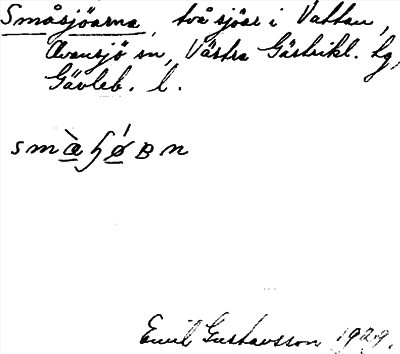 Småsjöarna, två sjöar i Vattan,
Ovansjö sn, Västra Gästrikl. hg,
Gävleb. l.
Emil Gustavsson 1929.